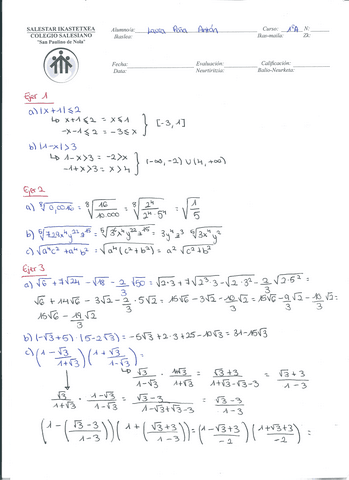 SALESTAR IKASTETXEA
COLEGIO SALESIANO
"San Paulino de Nola"
Alumno/a: Laura Peña Antón Curso: 1ºA N:
Ikaslea: Ikas-maila: Zk:
Fecha: Evaluación: Calificación:
Data: Neurtitzia: Balio-Neurketa:
Ejer 1
a) |x+1| ≤ 2
↳ x+1 ≤ 2 = x ≤ 1
-x-1 ≤ 2 = -3 ≤ x } [-3, 1]
b) |1-x| > 3
↳ 1-x > 3 = -2 > x
-1+x > 3 = x > 4 } (-∞, -2) ∪ (4, +∞)
Ejer 2
a) ⁸√0,0016 = ⁸√(16/10.000) = ⁸√(2⁴/2⁴·5⁴) = √(1/5)
c) √(a⁴c² + a⁴b²) = √(a⁴(c²+b²)) = a² √(c²+b²)
Ejer 3
a) √6 + 7√24 - √18 - 2/3 √50 = √2·3 + 7√2³·3 - √2·3² - 2/3 √2·5² =
√6 + 14√6 - 3√2 - 2/3 · 5√2 = 15√6 - 3√2 - 10/3 √2 = 15√6 - 9/3 √2 - 10/3 √2 =
15√6 - 19/3 √2
b) (-√3+5)·(5-2√3) = -5√3 + 2·3 + 25 - 10√3 = 31-15√3
c) (1 - √3/(1+√3)) (1 + √3/(1-√3)) =
↳ √3/(1-√3) · (1+√3)/(1+√3) = (√3+3)/(1+√3-√3-3) = (√3+3)/(1-3)
√3/(1+√3) · (1-√3)/(1-√3) = (√3-3)/(1-√3+√3-3) = (√3-3)/(1-3)
(1 - ((√3-3)/(1-3))) (1 + ((√3+3)/(1-3))) = ((1-√3+3)/-2) ((1+√3+3)/-2) =